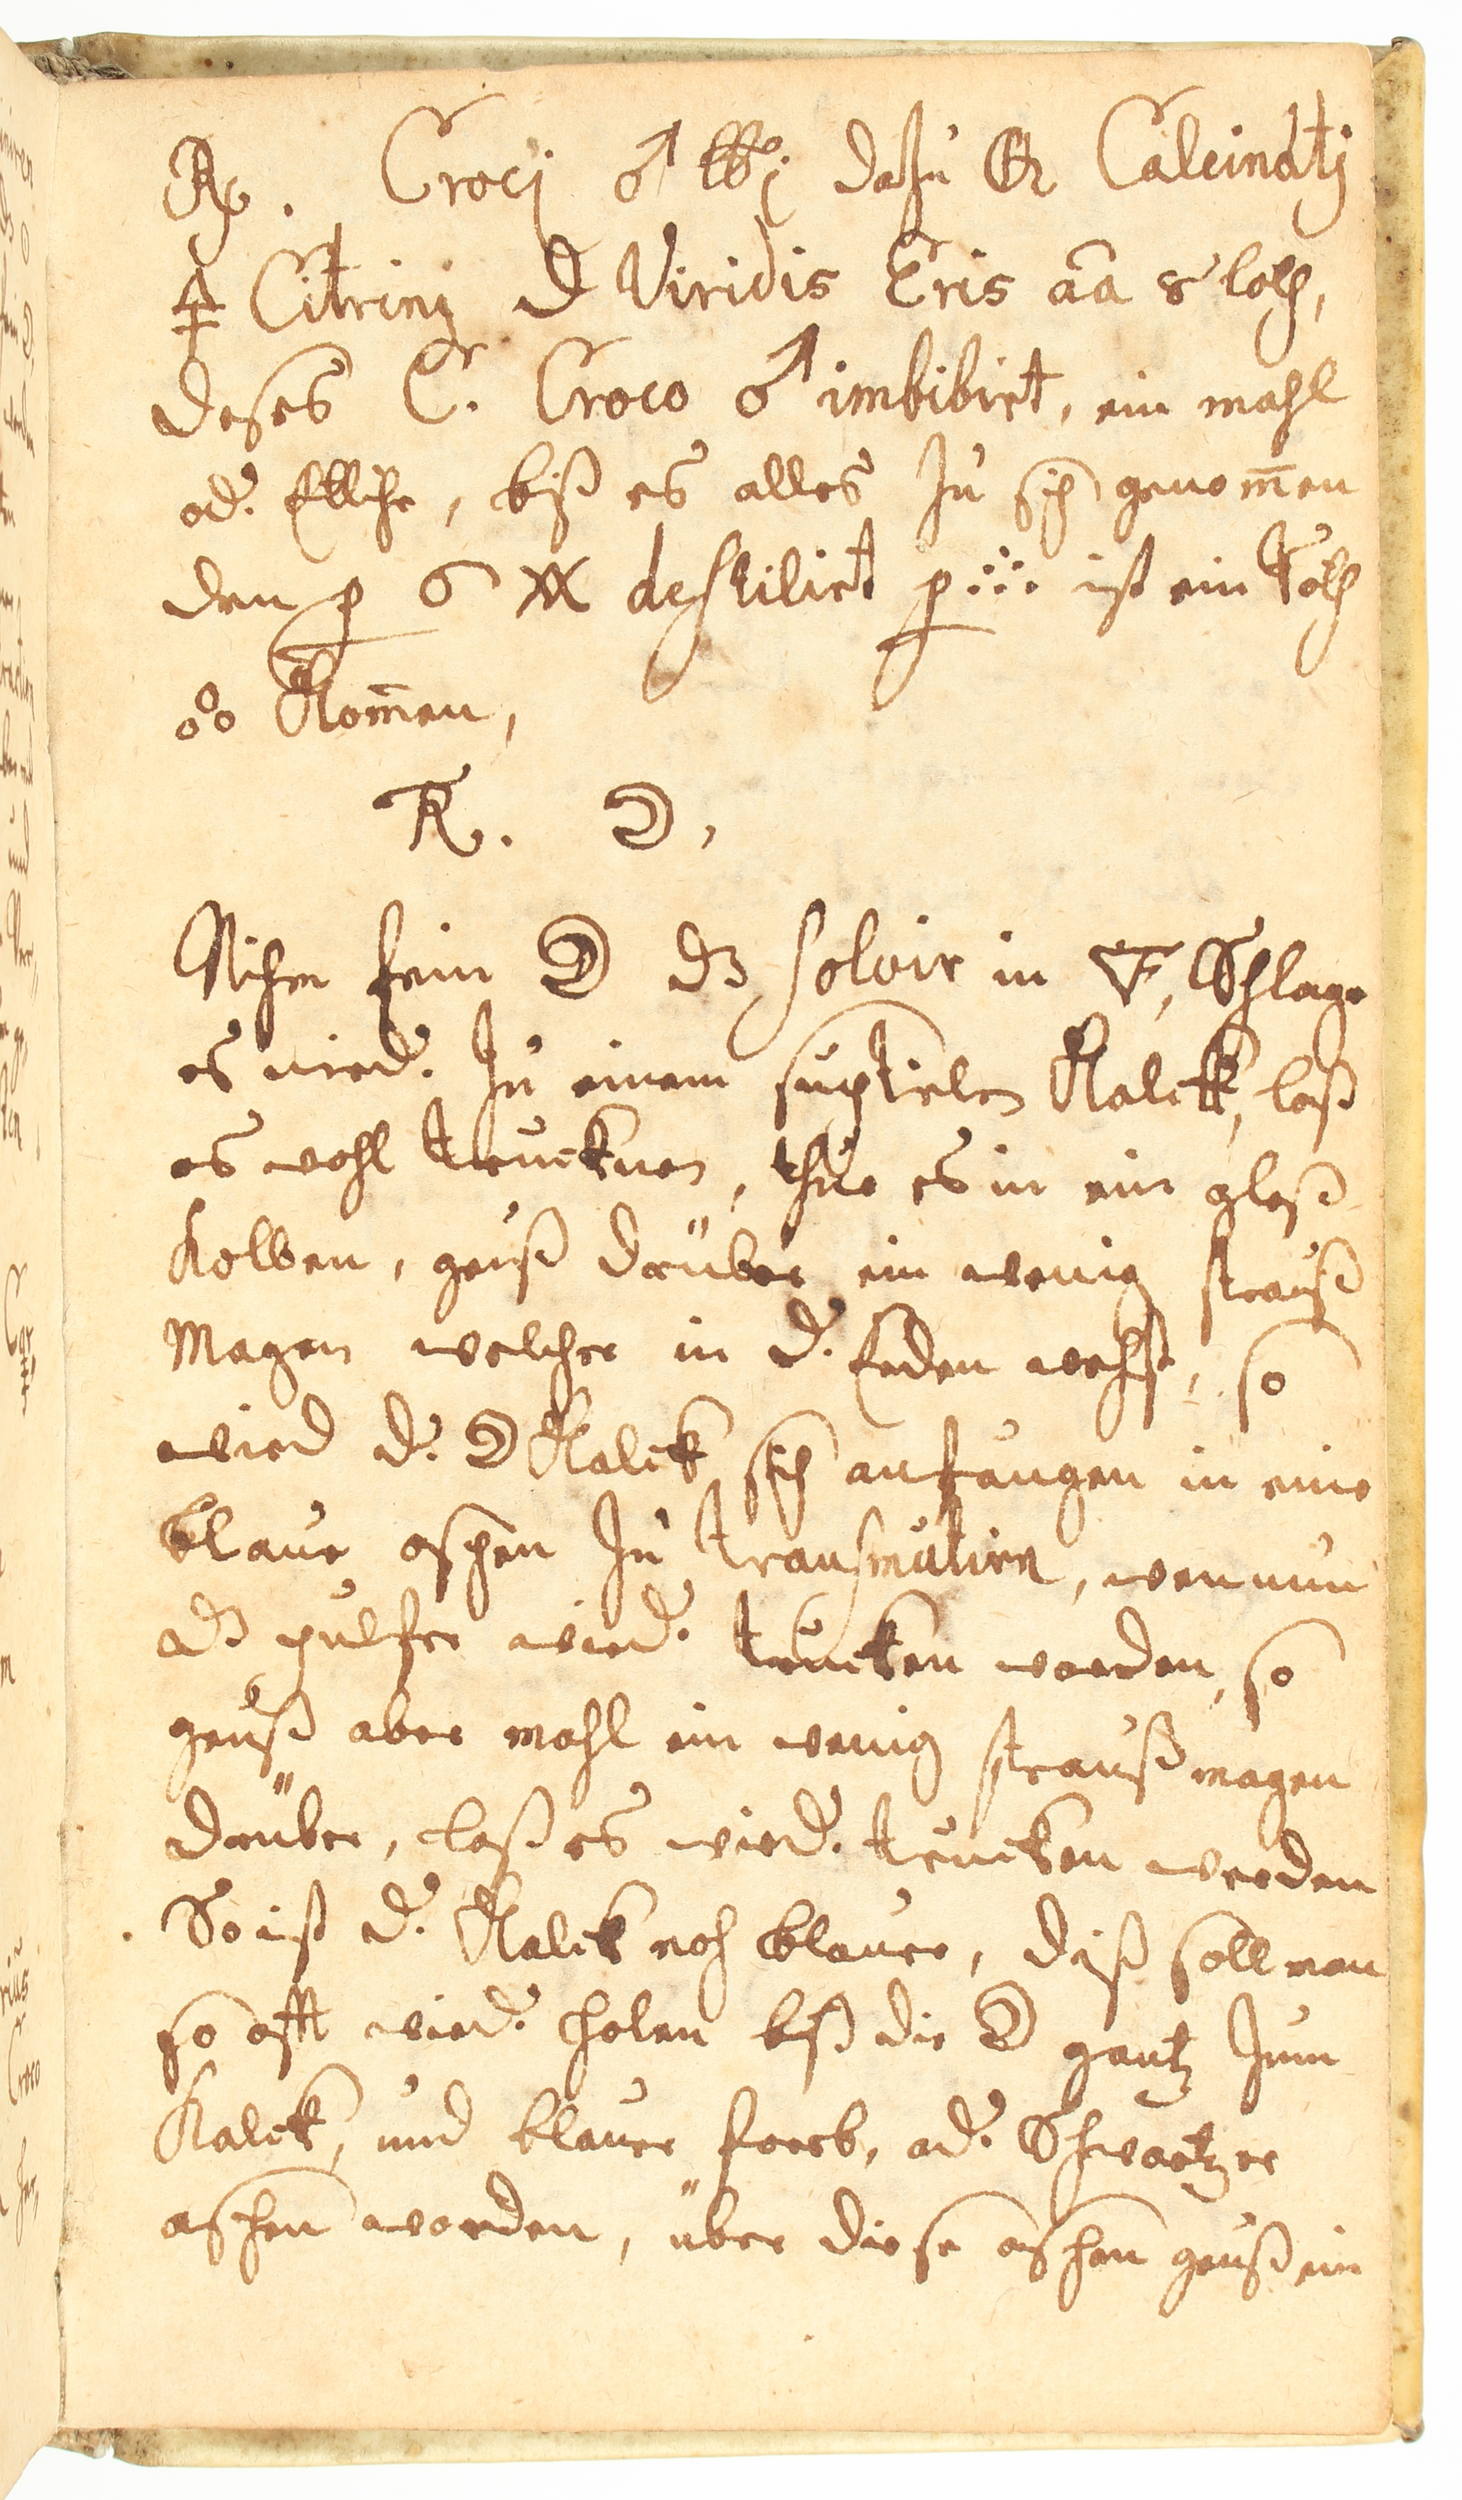 ℞. Crocj ♂ ℔j daßu Calcinatj
🜍 Citrinj ☽ Viridis Eris aa 8 loth,
deses C. Croco ♂ imbibirt, ein mahl
od. Etliche, biß es alles Zu sich genom̄en
den p destilirt p ist ein Loth
Kom̄en,
R. ☽,
Nihm fein ☽ dz solvir in 🜅, Schlage
es nied. Zu einem suptielen Kalck, laß
es wohl trucknen, thue es in ein glaß
Kolben, geuß drüber ein wenig strauß
Magen welcher in d. Erden wechst, so
wird d. ☽ Kalck sich anfangen in eine
blaue aschen Zu transmutirn, wen nun
dz pulfer wied. trucken worden, so
geuß aber mahl ein wenig strauß magen
drüber, laß es wied. trucken werden
So ist d. Kalck noch blauer, diß soll man
so offt wied. holen biß die ☽ gantz Zum
Kalck, und blauer farb, od. Schwartzer
aschen worden, über diese aschen geuß ein